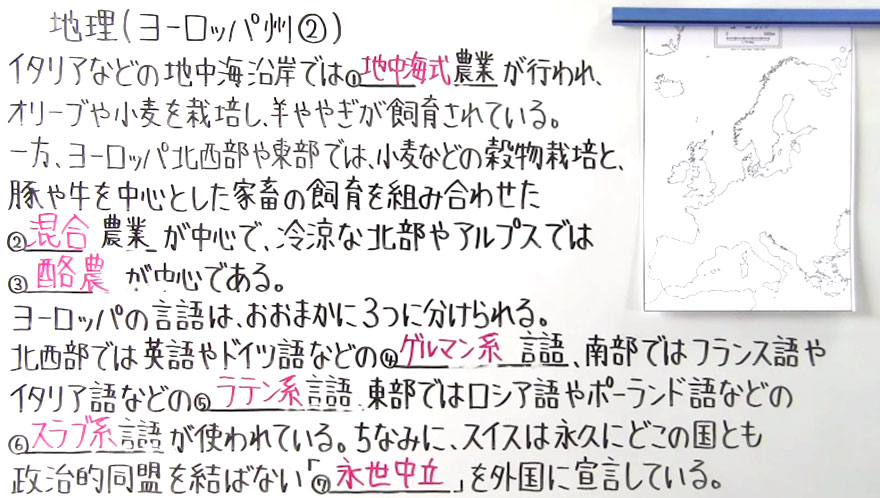 地理(ヨーロッパ州②)
イタリアなどの地中海沿岸では①地中海式農業が行われ、
オリーブや小麦を栽培し、羊ややぎが飼育されている。
一方、ヨーロッパ北西部や東部では、小麦などの穀物栽培と、
豚や牛を中心とした家畜の飼育を組み合わせた
②混合農業が中心で、冷涼な北部やアルプスでは
③酪農が中心である。
ヨーロッパの言語は、おおまかに3つに分けられる。
北西部では英語やドイツ語などの④ゲルマン系言語、南部ではフランス語や
イタリア語などの⑤ラテン系言語、東部ではロシア語やポーランド語などの
⑥スラブ系言語が使われている。ちなみに、スイスは永久にどこの国とも
政治的同盟を結ばない「⑦永世中立」を外国に宣言している。